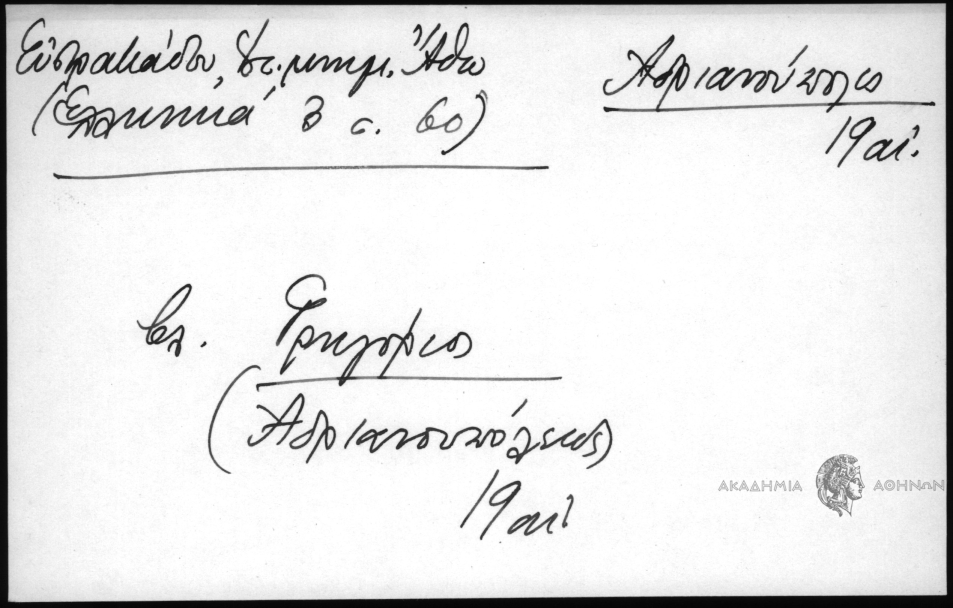 Εὐστρατιάδου, Ἱστ. μνημ. Ἄθω
(Ἑλληνικά 3 σ. 60)
Ἀδριανούπολις
19 αἰ.
Βλ. Γρηγόριος
(Ἀδριανουπόλεως)
19 αἰ.
ΑΚΑΔΗΜΙΑ ΑΘΗΝΩΝ